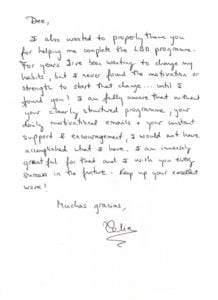 Dee,
I also wanted to properly thank you
for helping me complete the LBD programme.
For years I've been wanting to change my
habits, but I never found the motivation or
strength to start that change... until I
found you! I am fully aware that without
your clearly structured programme, your
daily motivational emails + your constant
support & encouragement, I would not have
accomplished what I have. I am immensely
grateful for that and I wish you every
success in the future. Keep up your excellent
work!
Muchas gracias,